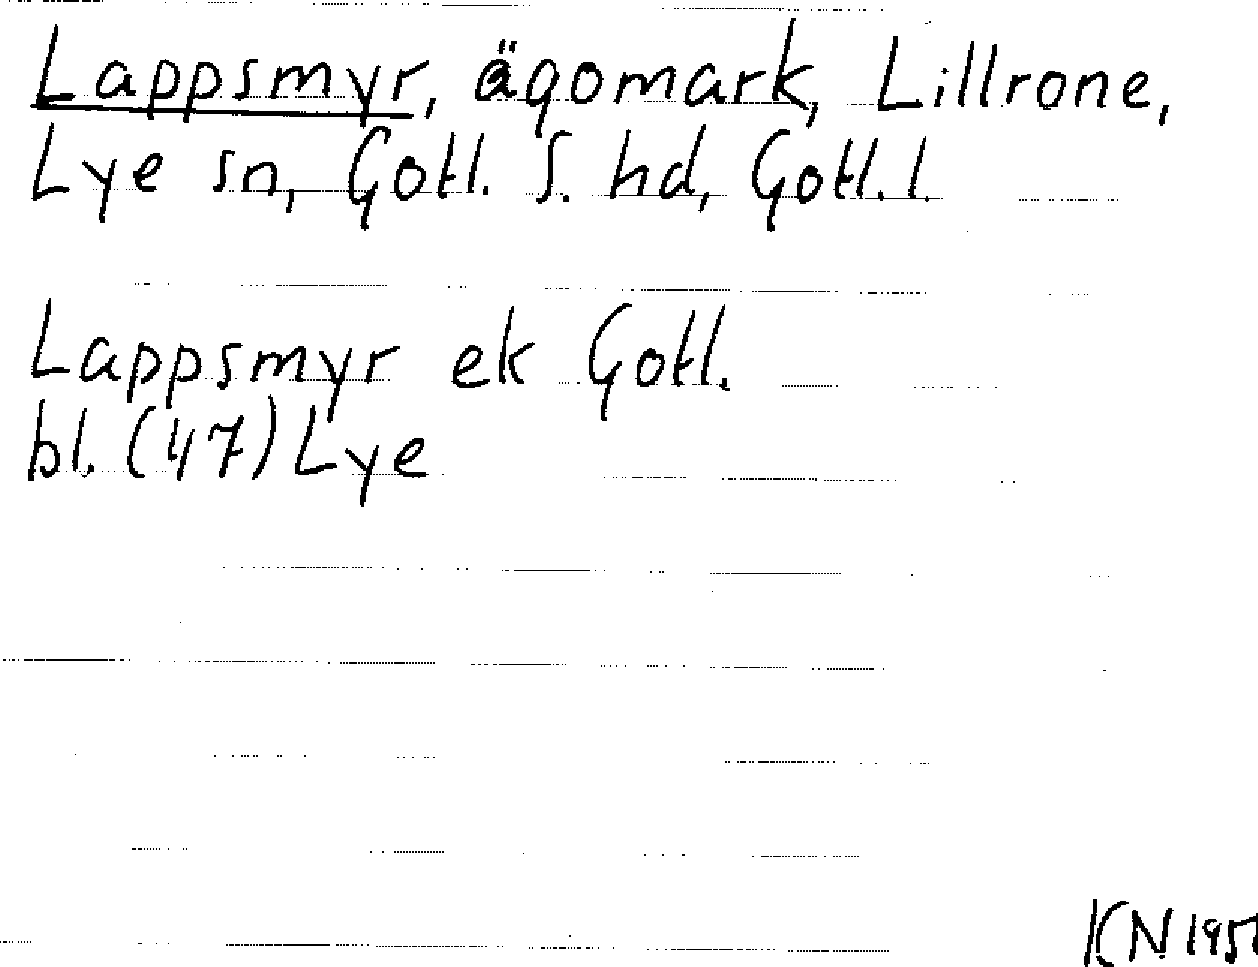 Lappsmyr, ägomark, Lillrone,
Lye sn, Gotl. S. hd, Gotl. l.
Lappsmyr ek Gotl.
bl. (47) Lye
KN